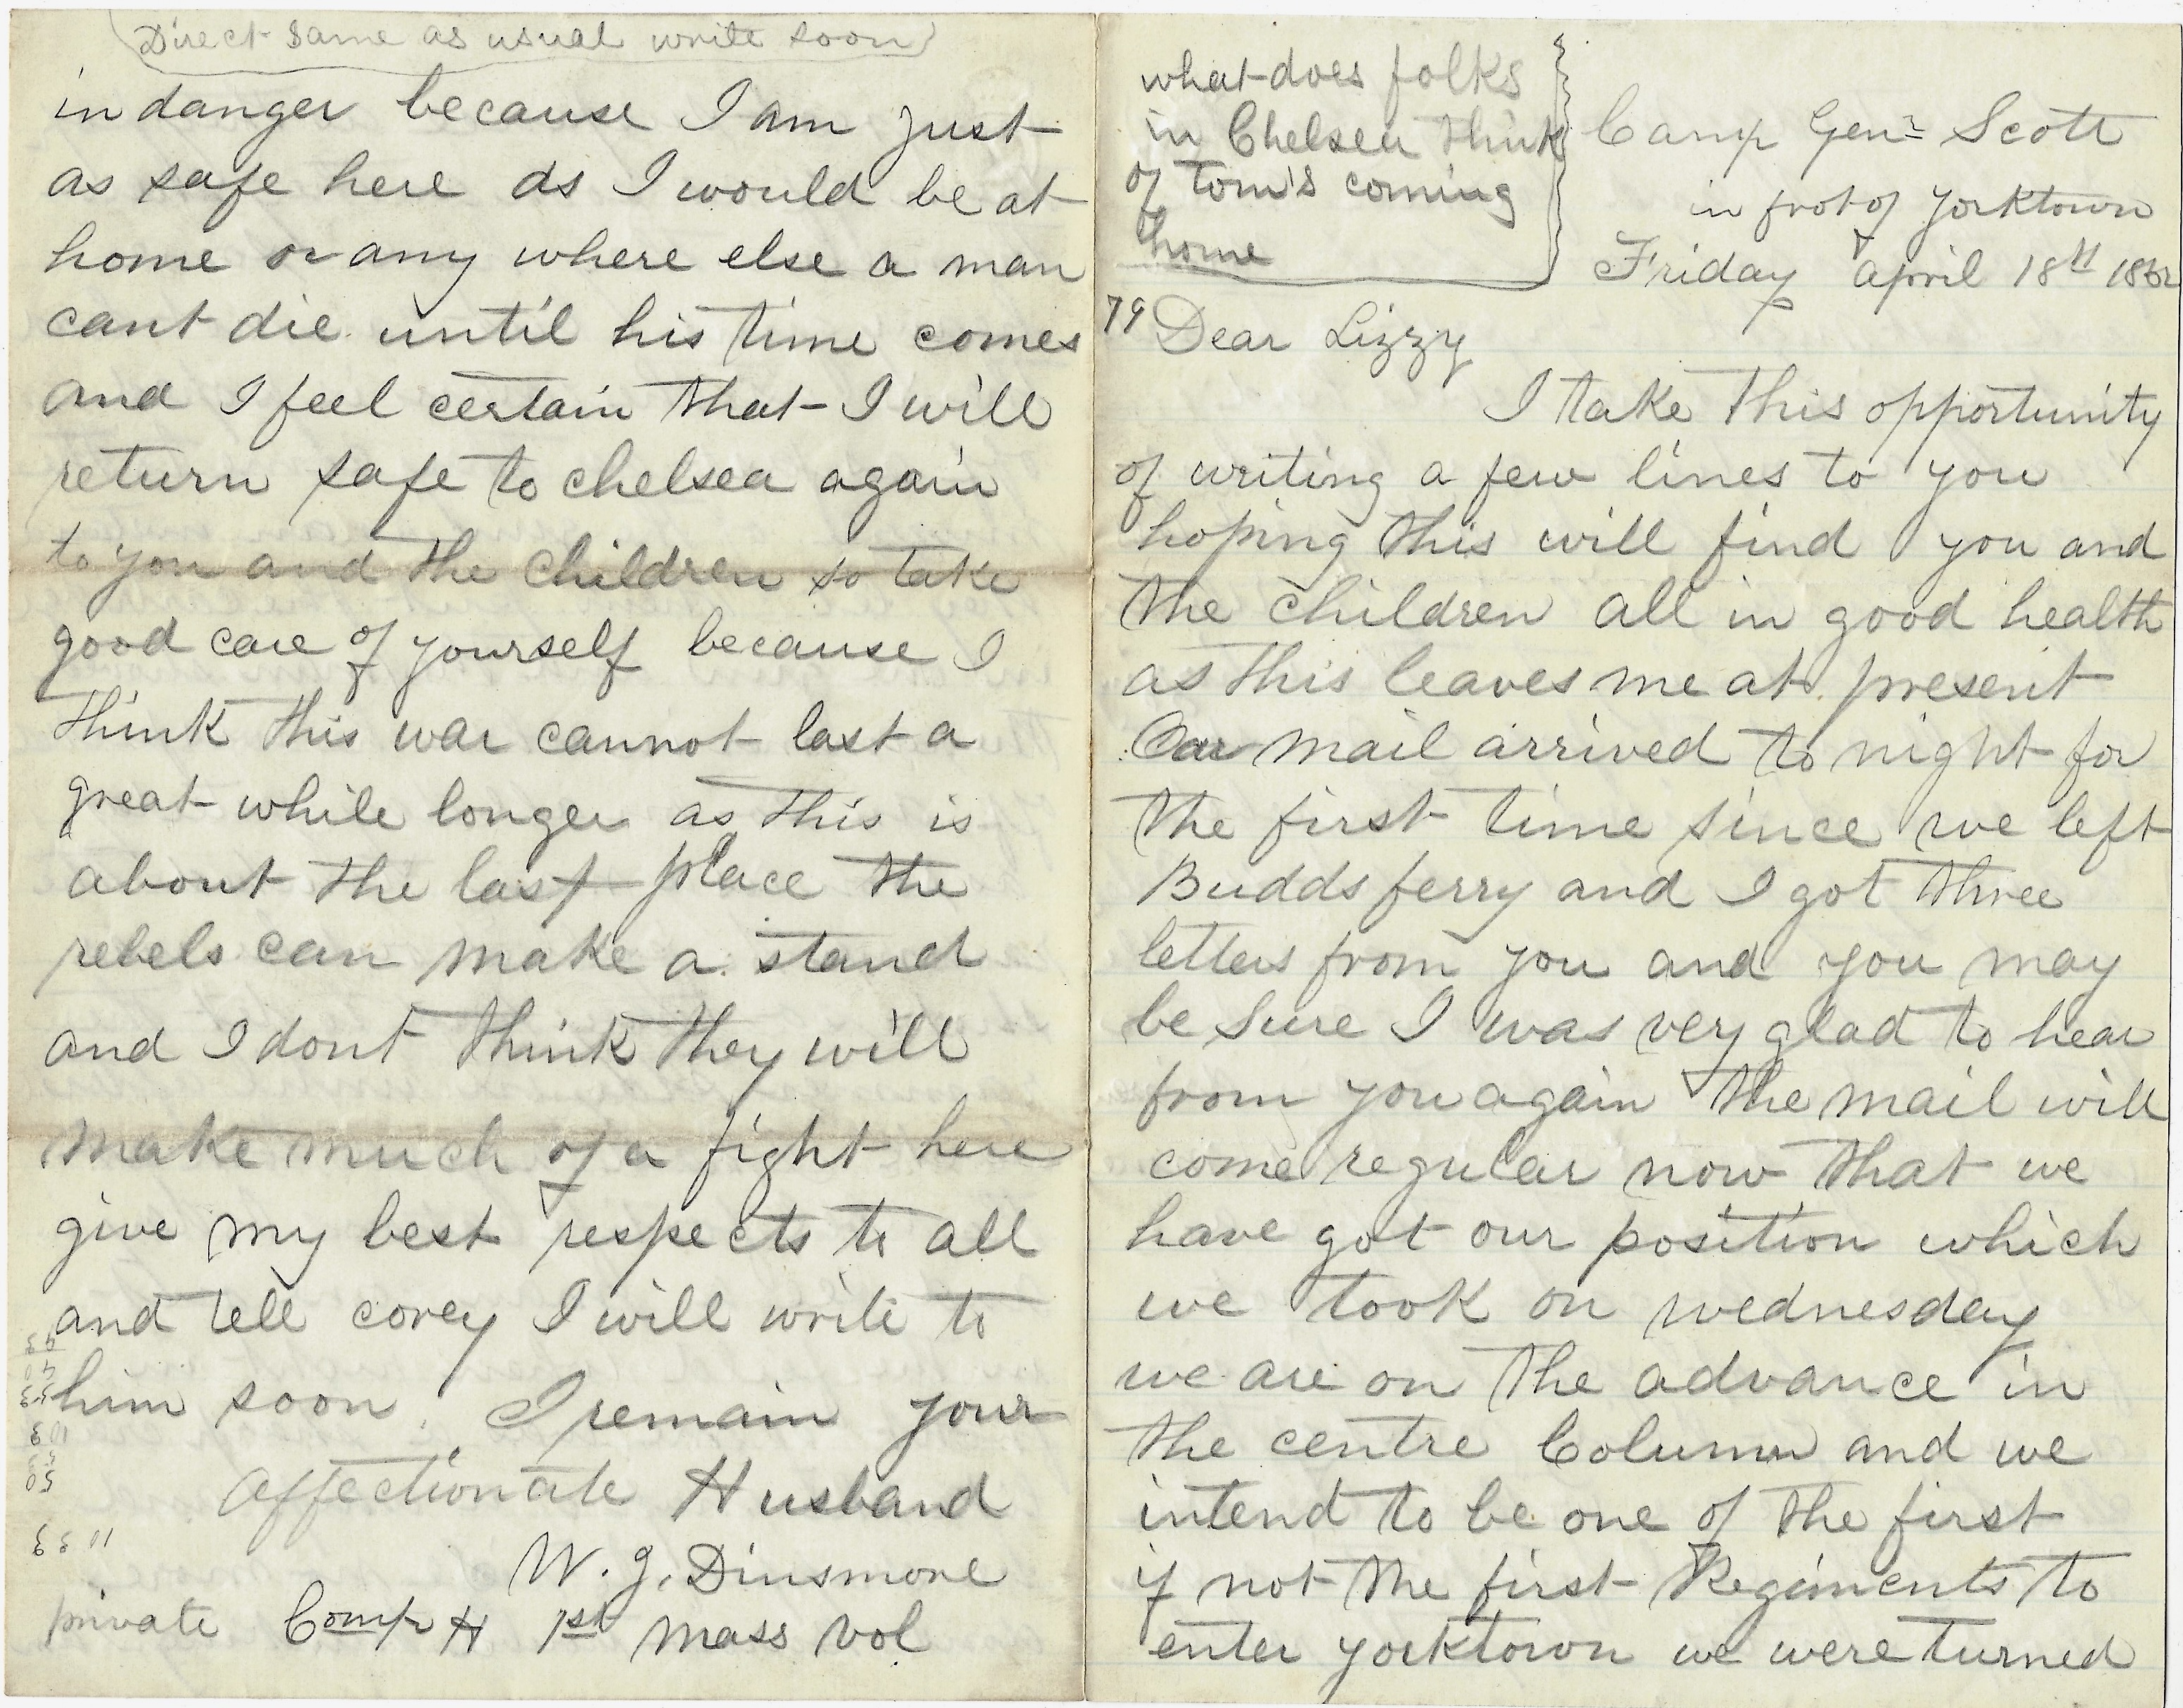 what does folks
in Chelsea think
of tom's coming
home
Camp Genr Scott
in frot of yorktown
Friday april 18th 1862
79
Dear Lizzy
I take this opportunity
of writing a few lines to you
hoping this will find you and
the children all in good health
as this leaves me at present
Our mail arrived to night for
the first time since we left
Budds ferry and I got three
letters from you and you may
be sure I was very glad to hear
from you again the mail will
come regular now that we
have got our position which
we took on wednesday
we are on the advance in
the centre Column and we
intend to be one of the first
if not the first Regiments to
enter yorktown we were turned
(Direct same as usual write soon)
in danger because I am just
as safe here as I would be at
home or any where else a man
cant die until his time comes
and I feel certain that I will
return safe to chelsea again
to you and the children so take
good care of yourself because I
think this war cannot last a
great while longer as this is
about the last place the
rebels can make a stand
and I dont think they will
make much of a fight here
give my best respects to all
and tell corey I will write to
him soon. I remain your
affectionate Husband
W. J. Dinsmore
private Comp H 1st mass vol